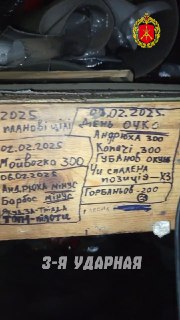 2025
планові цілі
02.02.2025
Мойвочка 300
06.02.2025
Андрюха мінус
Барбос мінус
03.02.2025
День ОЧКБ
Андрюха 300
Копачі 300
Губанов
Чи спалена
позиція - ХЗ
Горбаньов - 200
3-Я УДАРНАЯ